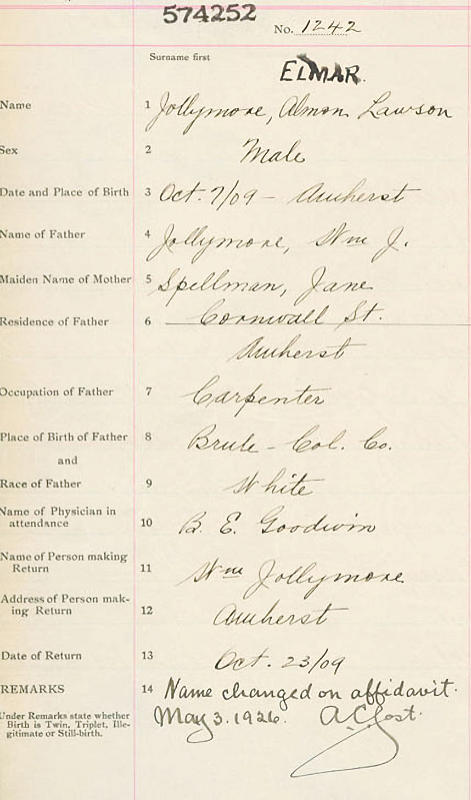 574252
No. 1242
Surname first
ELMAR.
Name 1 Jollymore, Almon Lawson
Sex 2 Male
Date and Place of Birth 3 Oct. 7/09 - Amherst
Name of Father 4 Jollymore, Wm J.
Maiden Name of Mother 5 Spellman, Jane
Residence of Father 6 Cornwall St.
Amherst
Occupation of Father 7 Carpenter
Place of Birth of Father 8 Brule - Col. Co.
and
Race of Father 9 White
Name of Physician in
attendance 10 B. E. Goodwin
Name of Person making
Return 11 Wm Jollymore
Address of Person mak-
ing Return 12 Amherst
Date of Return 13 Oct. 23/09
REMARKS 14 Name changed on affidavit.
May 3. 1926.
Under Remarks state whether
Birth is Twin, Triplet, Ille-
gitimate or Still-birth.